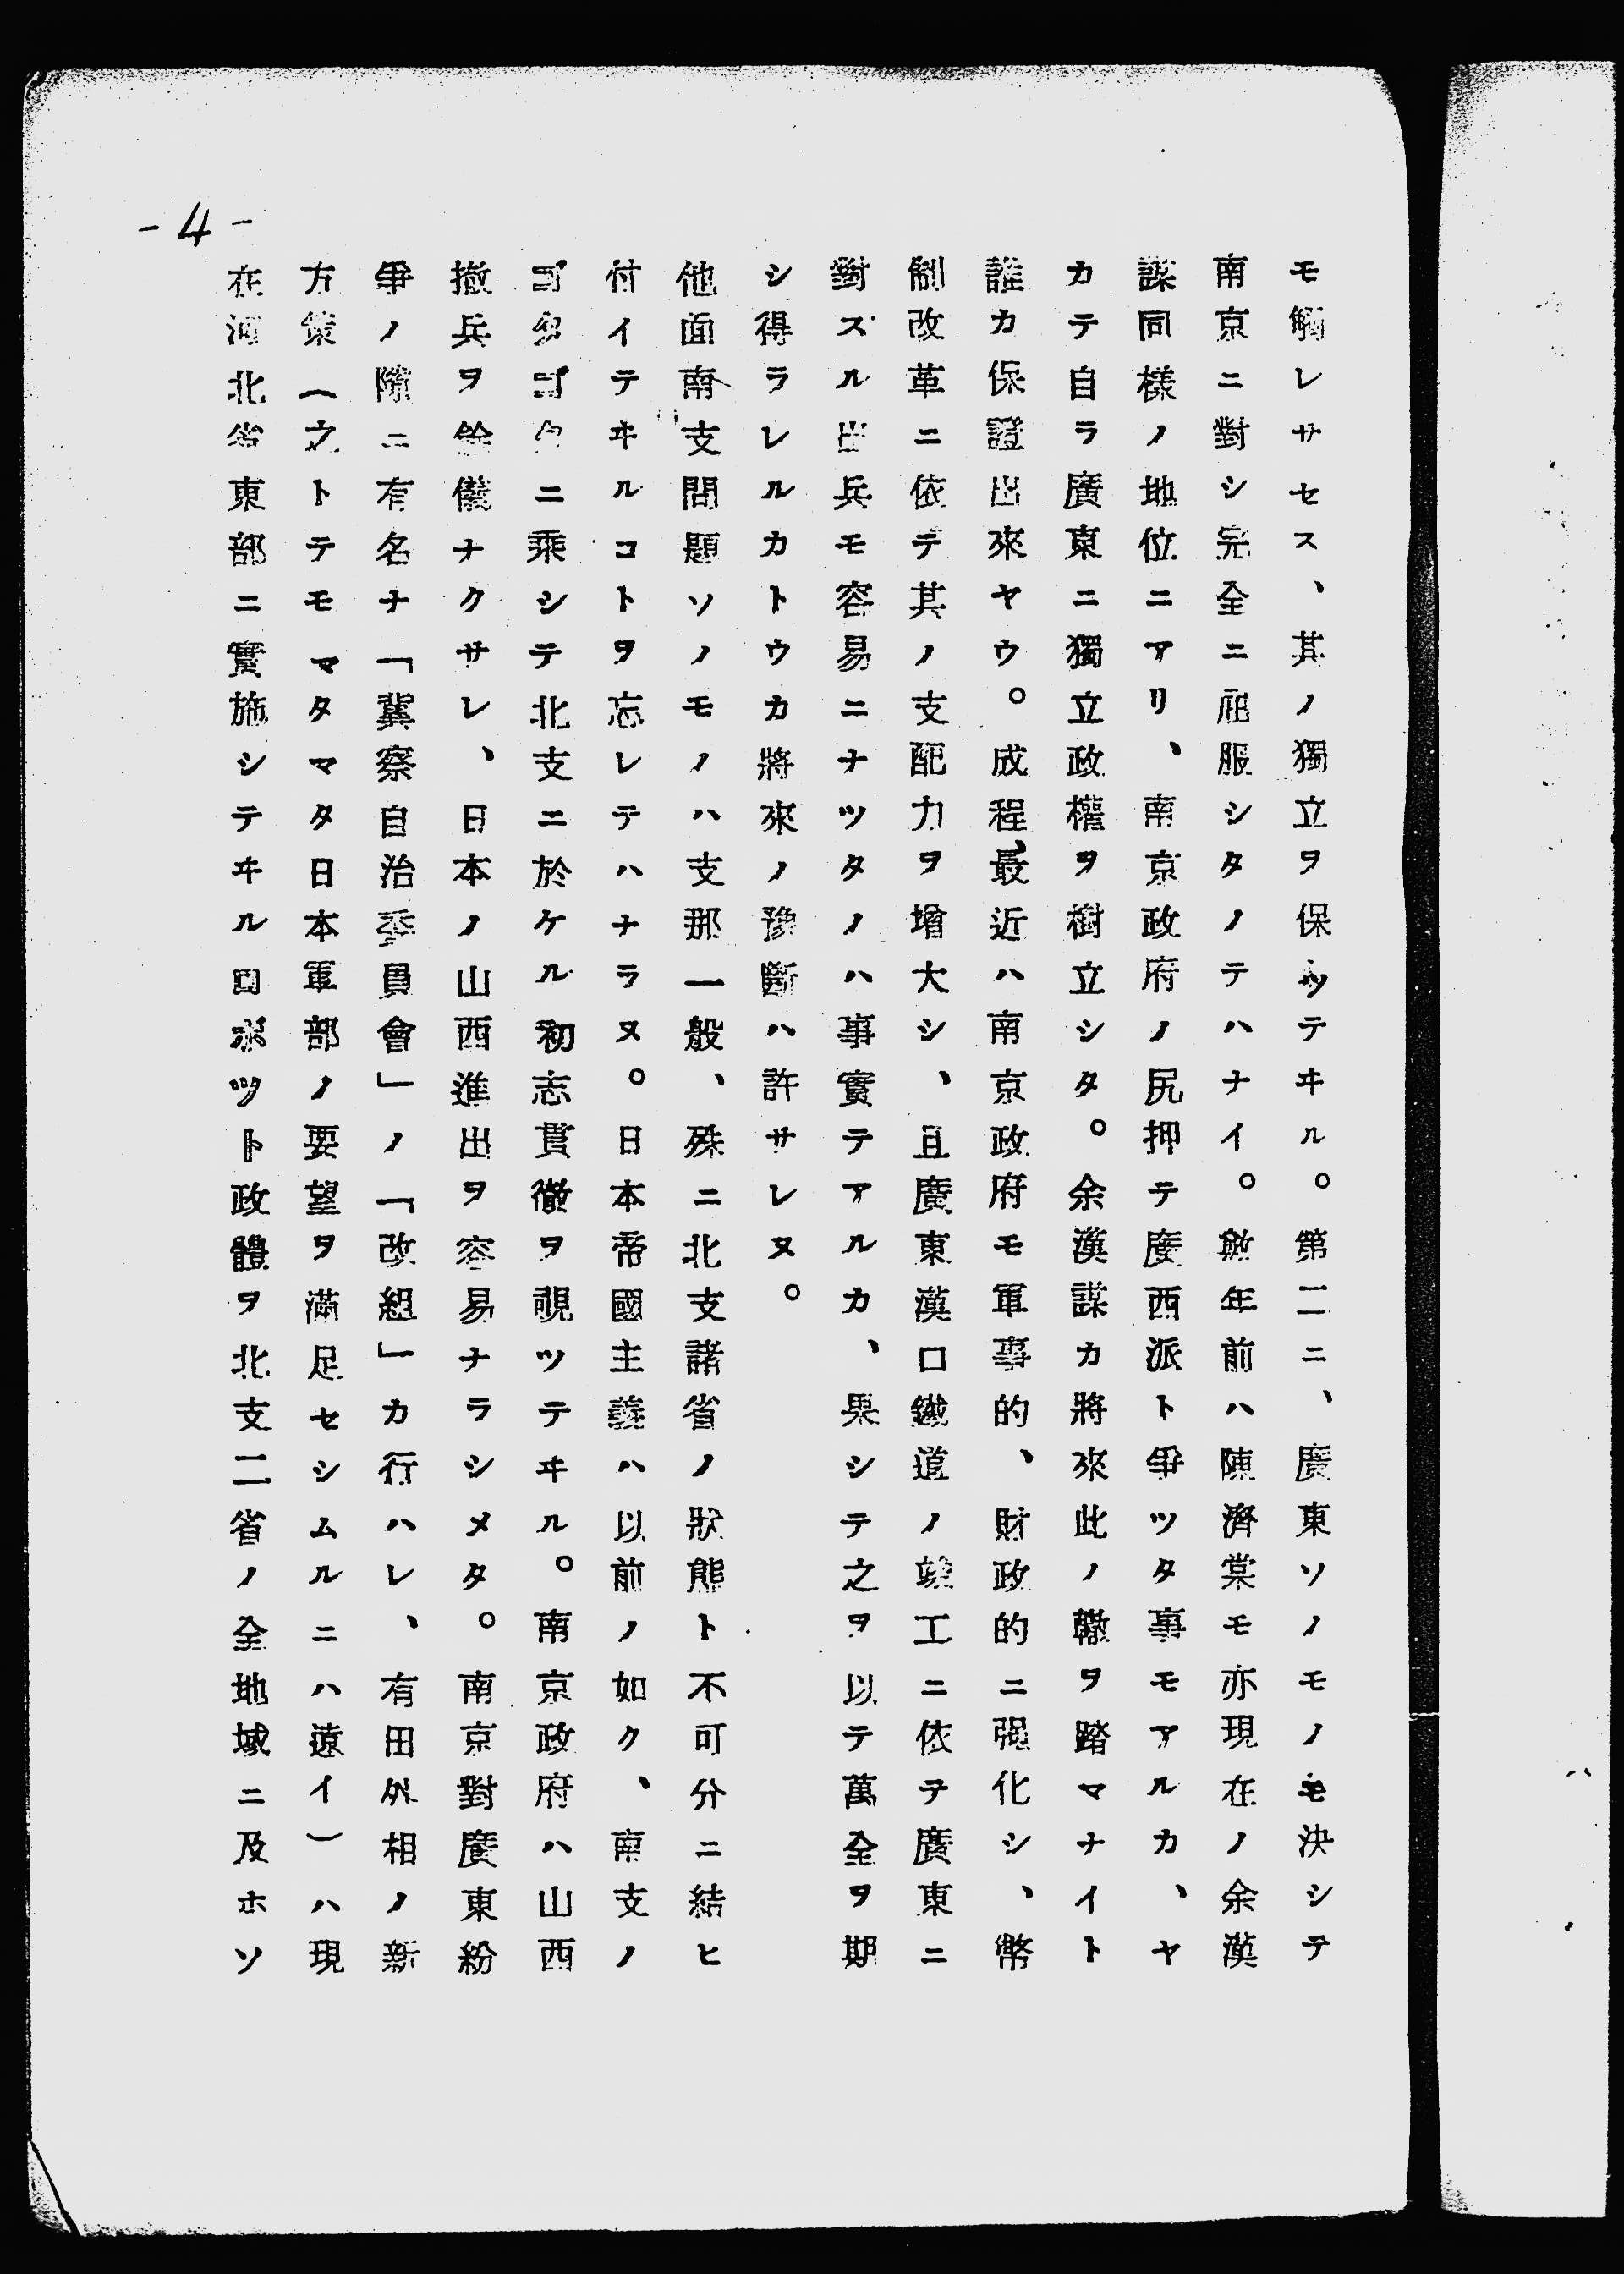 -4-
モ觸レサセス、其ノ獨立ヲ保ツテヰル。第二ニ、廣東ソノモノモ決シテ
南京ニ對シ完全ニ屈服シタノテハナイ。數年前ハ陳濟棠モ亦現在ノ余漢
謀同樣ノ地位ニアリ、南京政府ノ尻押テ廣西派ト爭ツタ事モアルカ、ヤ
カテ自ラ廣東ニ獨立政權ヲ樹立シタ。余漢謀カ將來此ノ轍ヲ踏マナイト
誰カ保證出來ヤウ。成程、最近ハ南京政府モ軍事的、財政的ニ强化シ、幣
制改革ニ依テ其ノ支配力ヲ增大シ、且廣東漢口鐵道ノ竣工ニ依テ廣東ニ
對スル出兵モ容易ニナツタノハ事實テアルカ、果シテ之ヲ以テ萬全ヲ期
シ得ラレルカトウカ將來ノ豫斷ハ許サレヌ。
他面南支問題ソノモノハ支那一般、殊ニ北支諸省ノ狀態ト不可分ニ結ヒ
付イテヰルコトヲ忘レテハナラヌ。日本帝國主義ハ以前ノ如ク、南支ノ
ゴタゴタニ乘シテ北支ニ於ケル初志貫徹ヲ覗ツテヰル。南京政府ハ山西
撤兵ヲ餘儀ナクサレ、日本ノ山西進出ヲ容易ナラシメタ。南京對廣東紛
爭ノ隙ニ有名ナ「冀察自治委員會」ノ「改組」カ行ハレ、有田外相ノ新
方策（之トテモマタマタ日本軍部ノ要望ヲ滿足セシムルニハ遠イ）ハ現
在河北省東部ニ實施シテヰルロボツト政體ヲ北支二省ノ全地域ニ及ホソ